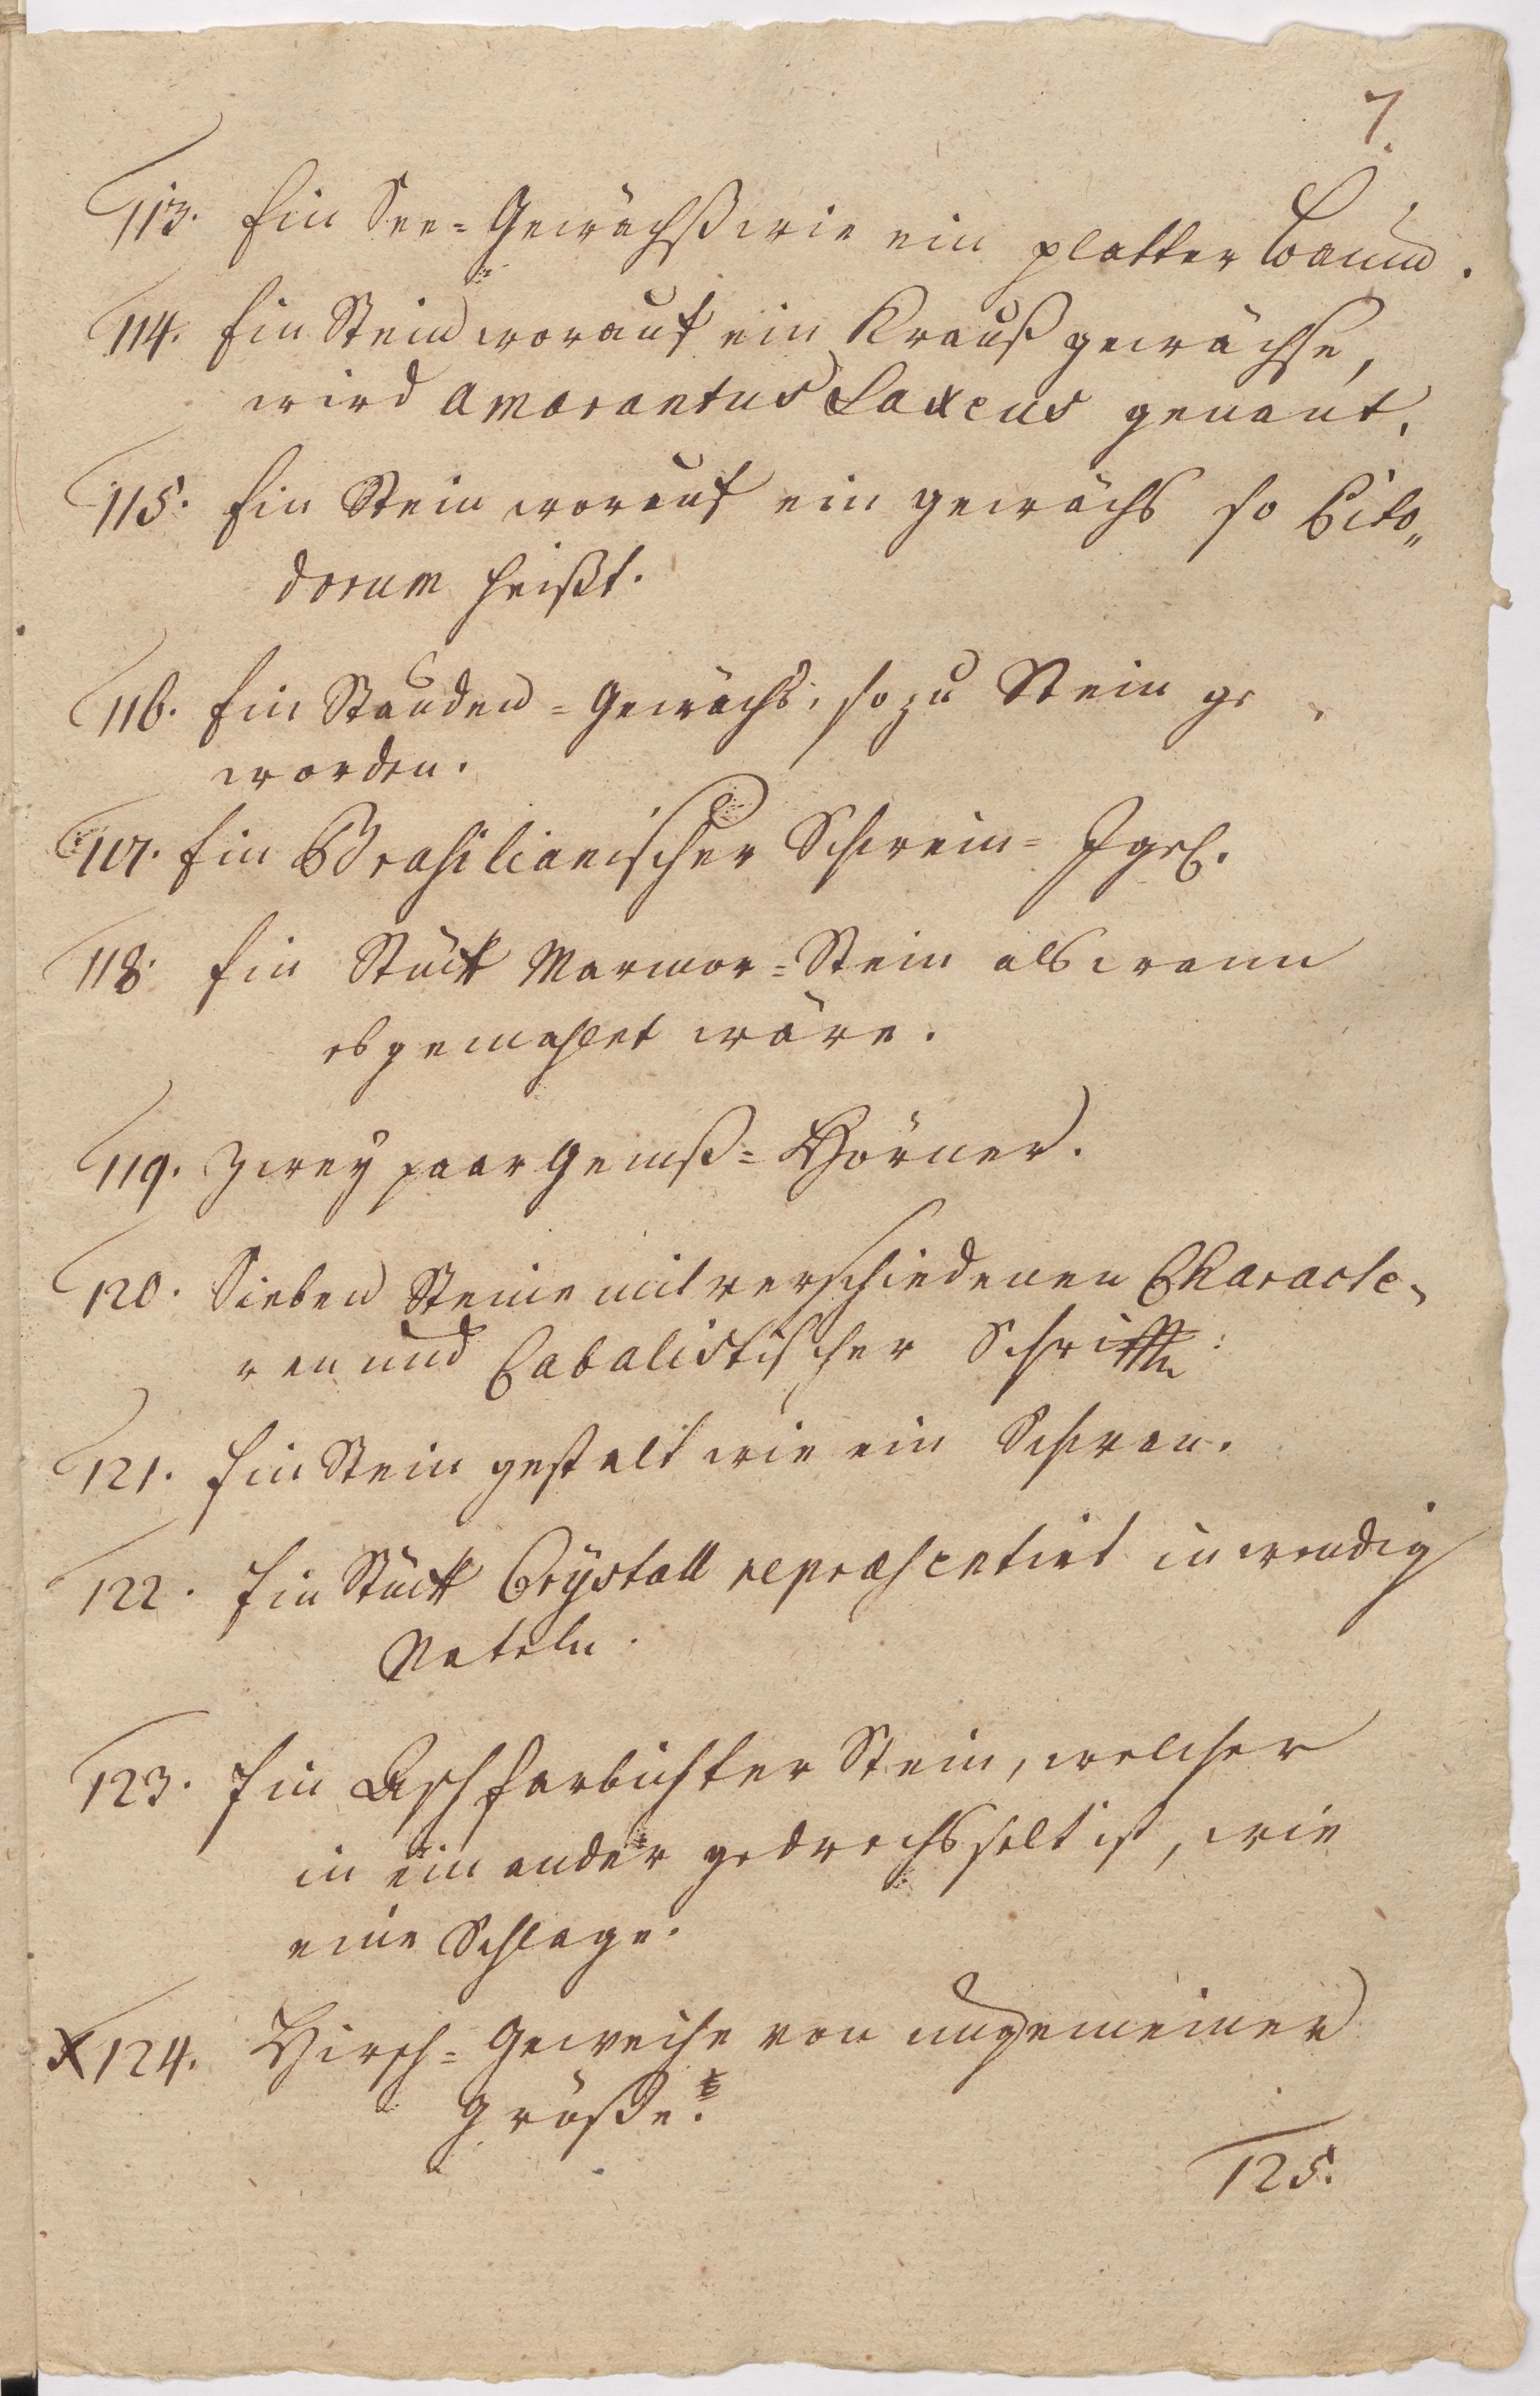 7.
113. Ein See=Gewächß wie ein platter Baum.
114. Ein Stein worauf ein Krauß gewächse,
wird Amarantus Saxeus genant.
115. Ein Stein worauf ein gewächs so Cito„
dorum heißt.
116. Ein Stauden=Gewächs, so zu Stein ge
worden.
117. Ein Brasilianischer Schwein=Igel.
118. Ein Stück Marmor=Stein als wann
es gemahlet wäre.
119. Zwey paar Gemß=Hörner.
120. Sieben Steine mit verschiedenen Characte„
ren und Cabalistischer Schrifften.
121. Ein Stein gestalt wie ein Schwan.
122. Ein Stück Crystall repræsentirt inwendig
Nateln.
123. Ein Aschfarbichter Stein, welcher
in ein ander gedrechsselt ist, wie
eine Schlage.
x 124. Hirsch=Geweihe von ungemeiner
Größe.
125.